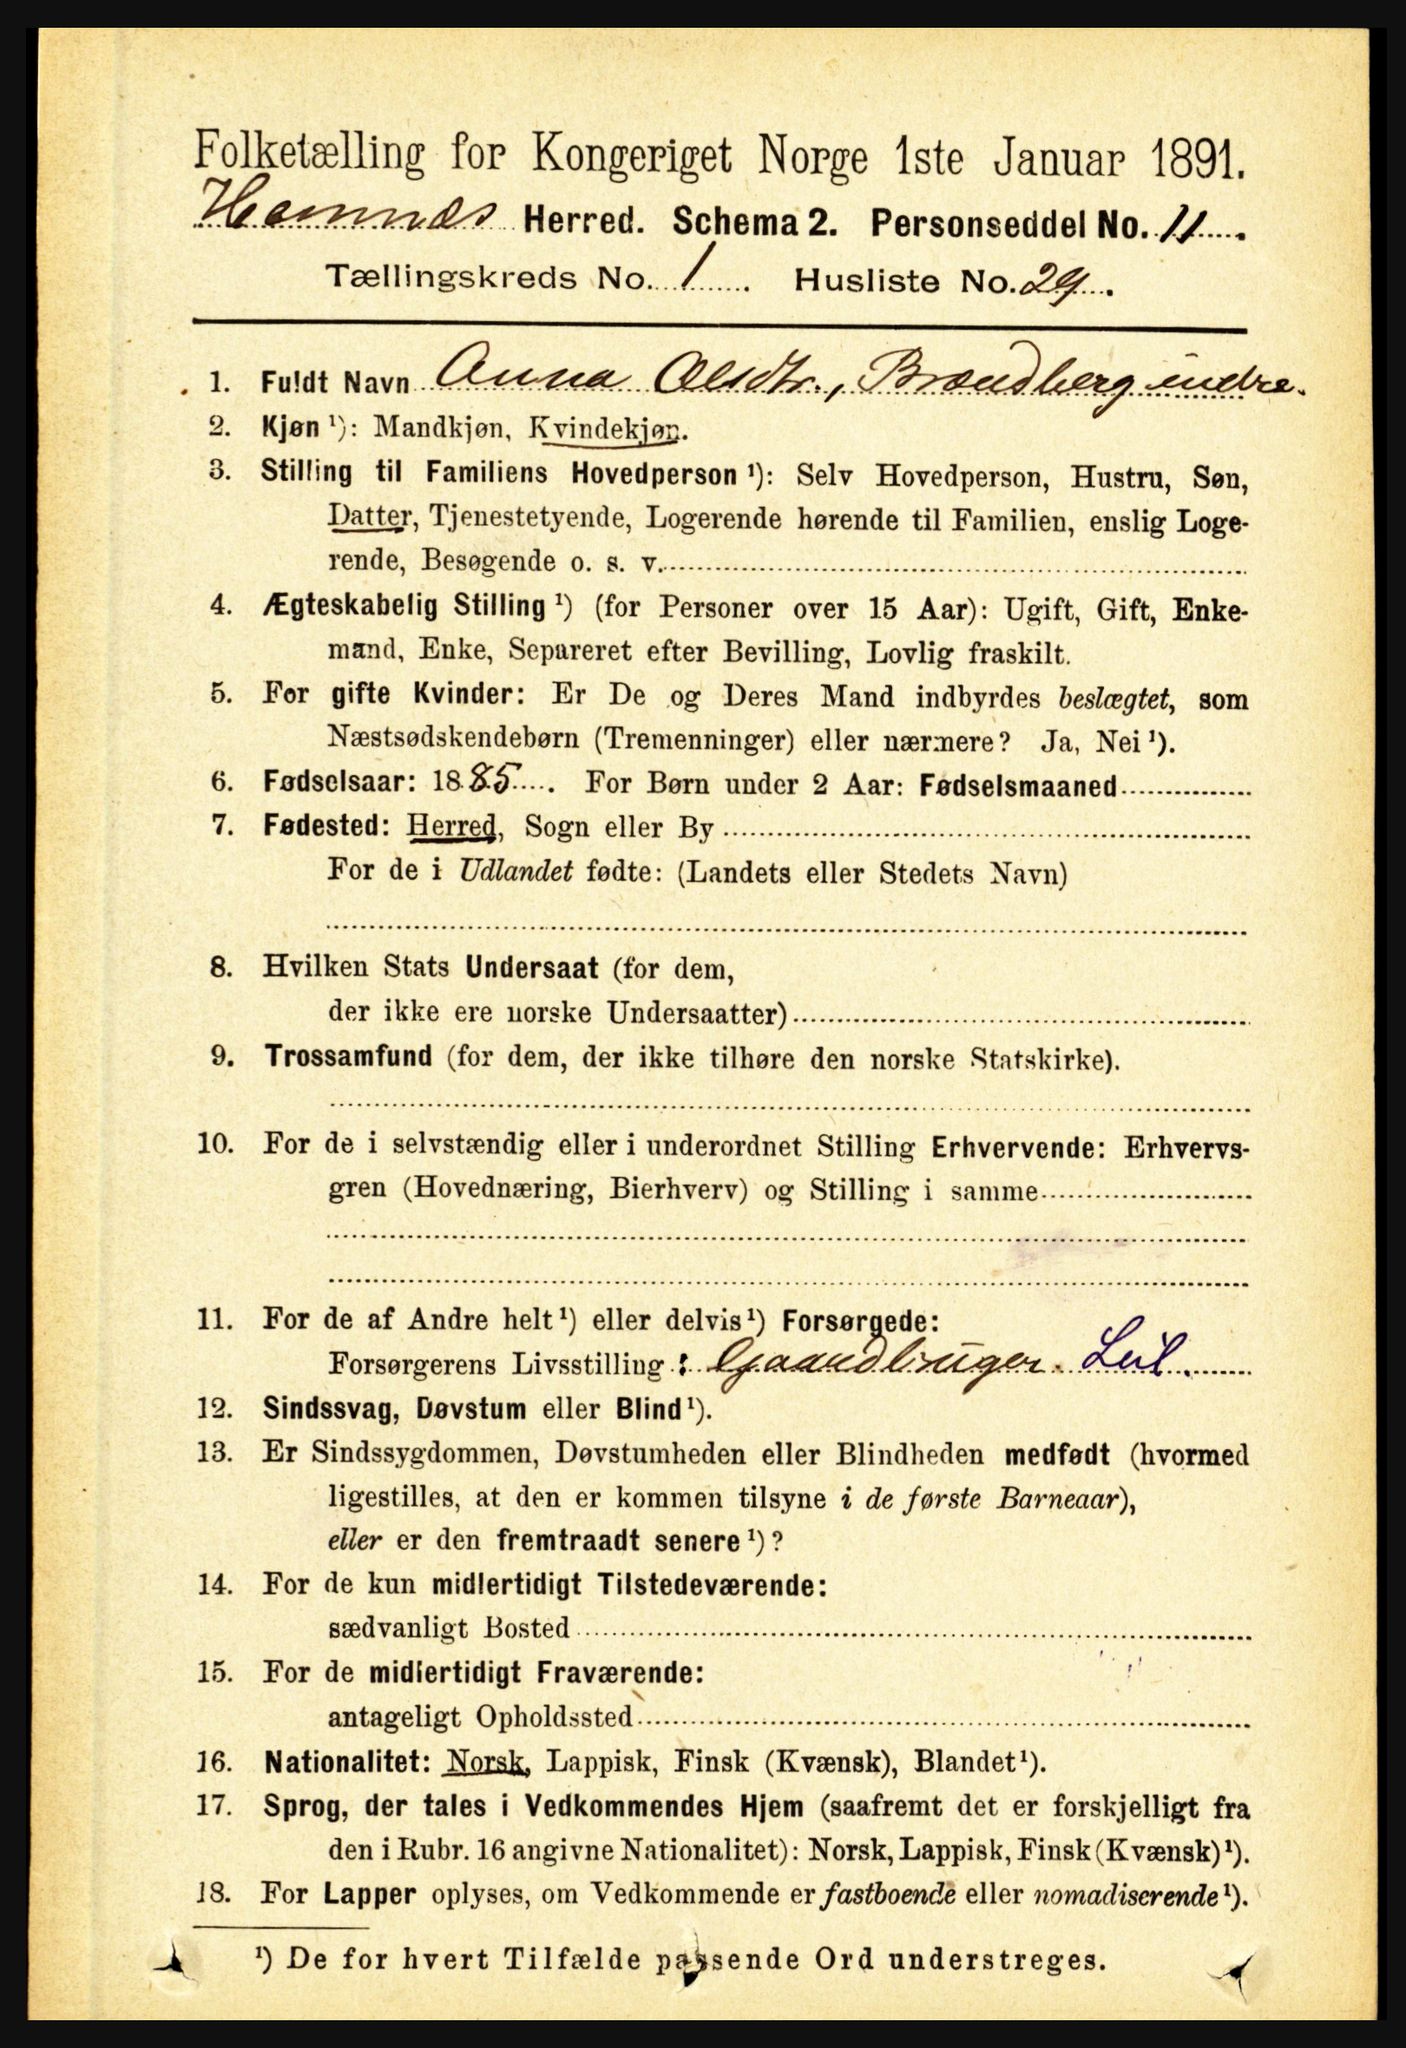 Folketælling for Kongeriget Norge 1ste Januar 1891.
Hemnæs Herred. Schema 2. Personseddel No. 11.
Tællingskreds No. 1. Husliste No. 29.
1. Fuldt Navn Anna Olsdtr., Brændberg indre.
2. Kjøn ¹): Mandkjøn, Kvindekjøn.
3. Stilling til Familiens Hovedperson ¹): Selv Hovedperson, Hustru, Søn,
Datter, Tjenestetyende, Logerende hørende til Familien, enslig Loge-
rende, Besøgende o. s. v.
4. Ægteskabelig Stilling ¹) (for Personer over 15 Aar): Ugift, Gift, Enke-
mand, Enke, Separeret efter Bevilling, Lovlig fraskilt.
5. For gifte Kvinder: Er De og Deres Mand indbyrdes beslægtet, som
Næstsødskendebørn (Tremenninger) eller nærmere? Ja, Nei ¹).
6. Fødselsaar: 1885. For Børn under 2 Aar: Fødselsmaaned
7. Fødested: Herred, Sogn eller By
For de i Udlandet fødte: (Landets eller Stedets Navn)
8. Hvilken Stats Undersaat (for dem,
der ikke ere norske Undersaatter)
9. Trossamfund (for dem, der ikke tilhøre den norske Statskirke).
10. For de i selvstændig eller i underordnet Stilling Erhvervende: Erhvervs-
gren (Hovednæring, Bierhverv) og Stilling i samme
11. For de af Andre helt ¹) eller delvis ¹) Forsørgede:
Forsørgerens Livsstilling: Gaardbruger. Leil.
12. Sindssvag, Døvstum eller Blind ¹).
13. Er Sindssygdommen, Døvstumheden eller Blindheden medfødt (hvormed
ligestilles, at den er kommen tilsyne i de første Barneaar),
eller er den fremtraadt senere ¹)?
14. For de kun midlertidigt Tilstedeværende:
sædvanligt Bosted
15. For de midlertidigt Fraværende:
antageligt Opholdssted
16. Nationalitet: Norsk, Lappisk, Finsk (Kvænsk), Blandet ¹).
17. Sprog, der tales i Vedkommendes Hjem (saafremt det er forskjelligt fra
den i Rubr. 16 angivne Nationalitet): Norsk, Lappisk, Finsk (Kvænsk) ¹).
18. For Lapper oplyses, om Vedkommende er fastboende eller nomadiserende ¹).
¹) De for hvert Tilfælde passende Ord understreges.